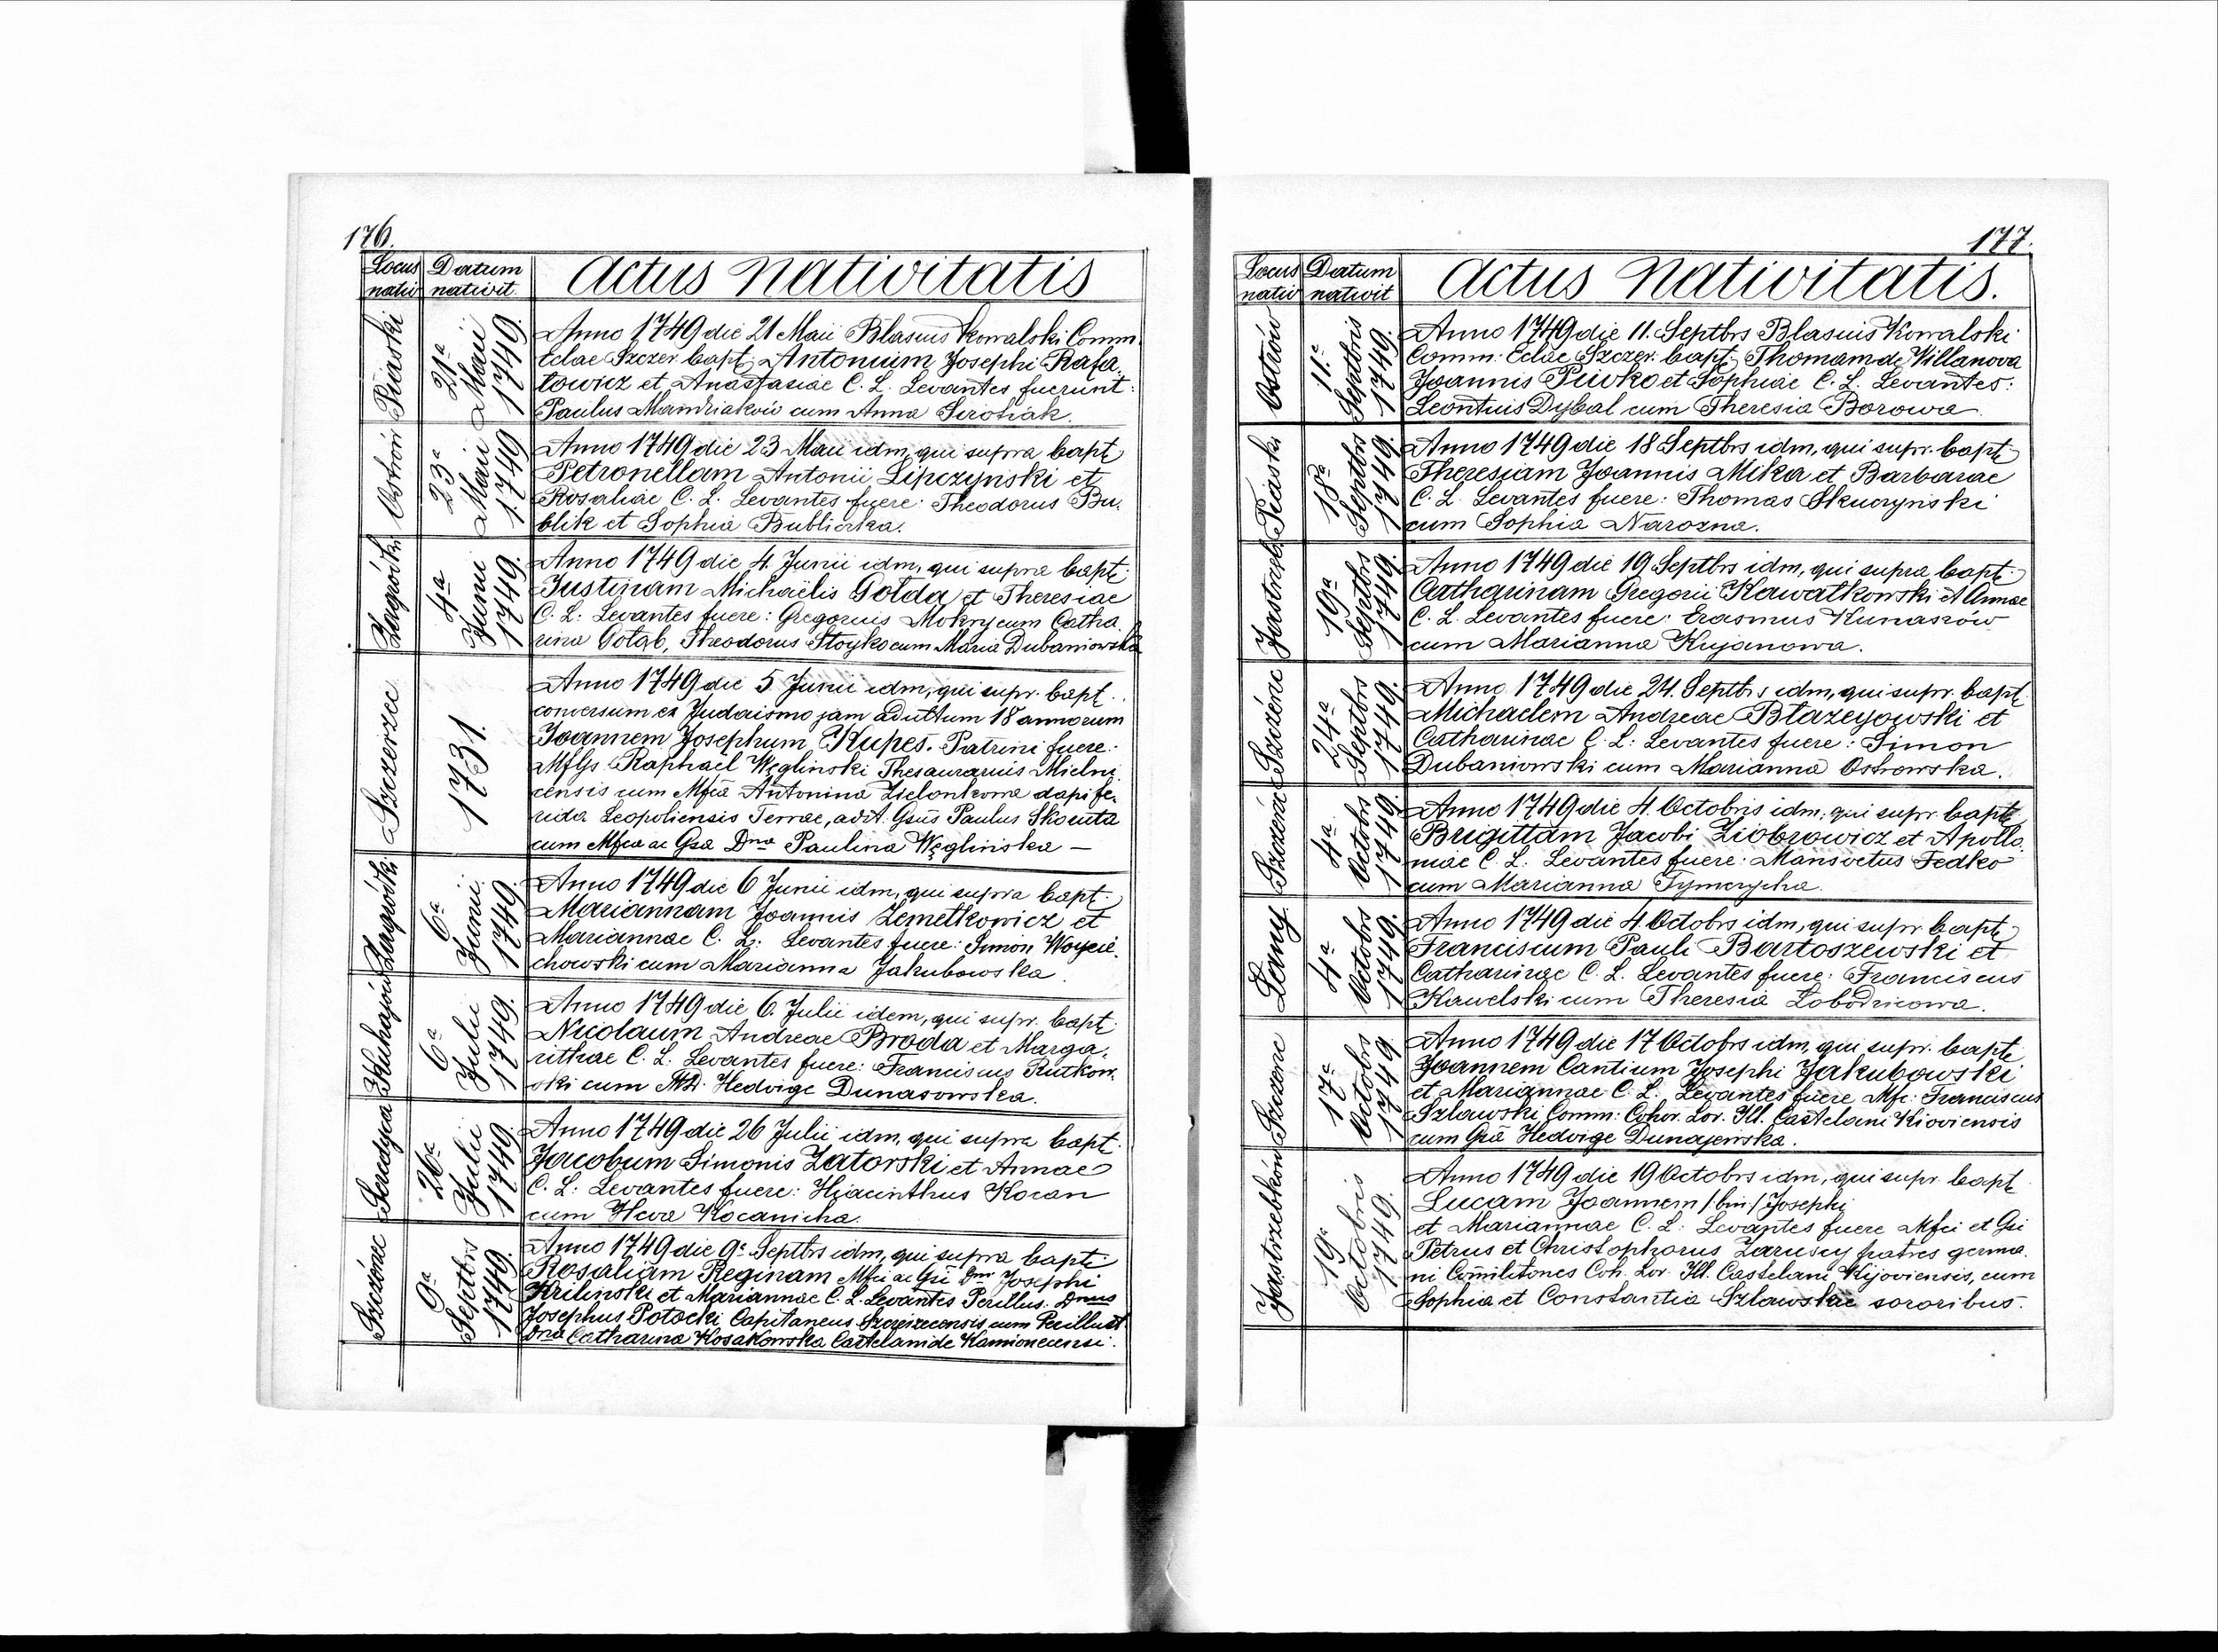 176.
Locus nativ
Datum nativit.
Actus Nativitatis
Piaski
21ª Maii 1749.
Anno 1749 die 21 Maii Blasius Kowalski Comm.
Eclae Szczer. bapt. Antonium Josephi Rafa-
łowicz et Anastasiae C. L. Levantes fuerunt:
Paulus Mandziaków cum Anna Sirotiak.
Ostrów
23ª Maii 1749
Anno 1749 die 23 Maii idm, qui supra bapt.
Petronellam Antonii Lipczynski et
Rosaliae C. L. Levantes fuere: Theodorus Bu-
blik et Sophia Bubliczka.
Zagródki
4ª Junii 1749.
Anno 1749 die 4. Junii idm, qui supra bapt.
Justinam Michaëlis Gołda et Theresiae
C. L: Levantes fuere: Gregorius Mokry cum Catha-
rina Gołąb, Theodorus Stoyko cum Maria Dubaniowska
Szczerzec
1731.
Anno 1749 die 5 Junii idm, qui supr. bapt.
conversum ex Judaismo jam adultum 18 annorum
Joannem Josephum Krupes. Patrini fuere:
Mfgs. Raphael Węglinski Thesaurarius Mielni-
censis cum Mfca Antonina Zielonkowa dapife-
rida Leopoliensis Terrae, adst. Gsus Paulus Skoruta
cum Mfca ac Gsa Dna Paulina Węglinska —
Zagródki
6ª Junii 1749.
Anno 1749 die 6 Junii idm, qui supra bapt.
Mariannam Joannis Zemełkowicz et
Mariannae C. L: Levantes fuere: Simon Woycie-
chowski cum Marianna Jakubowska.
Kuhajów
6ª Julii 1749.
Anno 1749 die 6. Julii idem, qui supr. bapt.
Nicolaum Andreae Broda et Marga-
rithae C. L. Levantes fuere: Franciscus Rutkow-
ski cum MD. Hedvige Dunasowska.
Serdyca
26ª Julii 1749.
Anno 1749 die 26 Julii idm, qui supra bapt.
Jacobum Simonis Zatorski et Annae
C. L: Levantes fuere: Hiacinthus Kocan
cum Heva Kocanicha.
Szczérzec
9ª Septbrs 1749.
Anno 1749 die 9ª Septbrs idm, qui supra bapt.
Rosaliam Reginam Mfci ac Gsi Dni Josephi
Krilinski et Mariannae C. L. Levantes Perillus. Dnus
Josephus Potocki Capitaneus Szczirzecensis cum Perillust.
Dna Catharina Kosakowska Castelanide Kamionecensi.
177.
Locus nativ
Datum nativit
Actus Nativitatis.
Ostrów
11ª Septbris 1749.
Anno 1749 die 11. Septbrs Blasius Kowalski
Comm: Eclae Szczer. bapt. Thomam de Villanova
Joannis Piwko et Sophiae C. L. Levantes:
Leontius Dybal cum Theresia Borowa.
Piaski
18ª Septbrs 1749.
Anno 1749 die 18 Septbrs idm, qui supr. bapt.
Theresiam Joannis Mika et Barbarae
C. L. Levantes fuere: Thomas Skuczynski
cum Sophia Narozna.
Jastrzeb.
19ª Septbrs 1749.
Anno 1749 die 19 Septbrs idm, qui supra bapt.
Catharinam Gregorii Kawałkowski et Annae
C. L. Levantes fuere: Erasmus Kunaszow
cum Marianna Kryanowa.
Szczérzec
24ª Septbrs 1749.
Anno 1749 die 24. Septbrs idm, qui supr. bapt.
Michaelem Andreae Błazeyowski et
Catharinae C. L: Levantes fuere: Simon
Dubaniowski cum Marianna Ostrowska.
Szczérzec
4ª Octobrs 1749.
Anno 1749 die 4. Octobris idm, qui supr. bapt.
Brigittam Jacobi Ziobrowicz et Apollo-
niae C. L. Levantes fuere: Mansvetus Fedko
cum Marianna Tymczycha.
Łany.
4ª Octobrs 1749.
Anno 1749 die 4. Octobrs idm, qui supr. bapt.
Franciscum Pauli Bartoszewski et
Catharinae C. L. Levantes fuere: Franciscus
Kawelski cum Theresia Łobodzicowa.
Szczerzec
17ª Octobrs 1749.
Anno 1749 die 17 Octobrs idm, qui supr. bapt.
Joannem Cantium Josephi Jakubowski
et Mariannae C. L. Levantes fuere Mfc: Franciscus
Szlawski Comm: Cohor. Lor. Ill. Castelani Kioviensis
cum Gsa Hedvige Dunajewska.
Jastrzebków
19ª Octobris 1749.
Anno 1749 die 19 Octobrs idm, qui supr. bapt.
Lucam Joannem /bin/ Josephi
et Mariannae C. L: Levantes fuere Mfci et Gsi
Petrus et Christophorus Zaruscy fratres germa-
ni Comilitones Coh. Lor. Ill. Castelani Kijoviensis, cum
Sophia et Constantia Szlawskie sororibus.